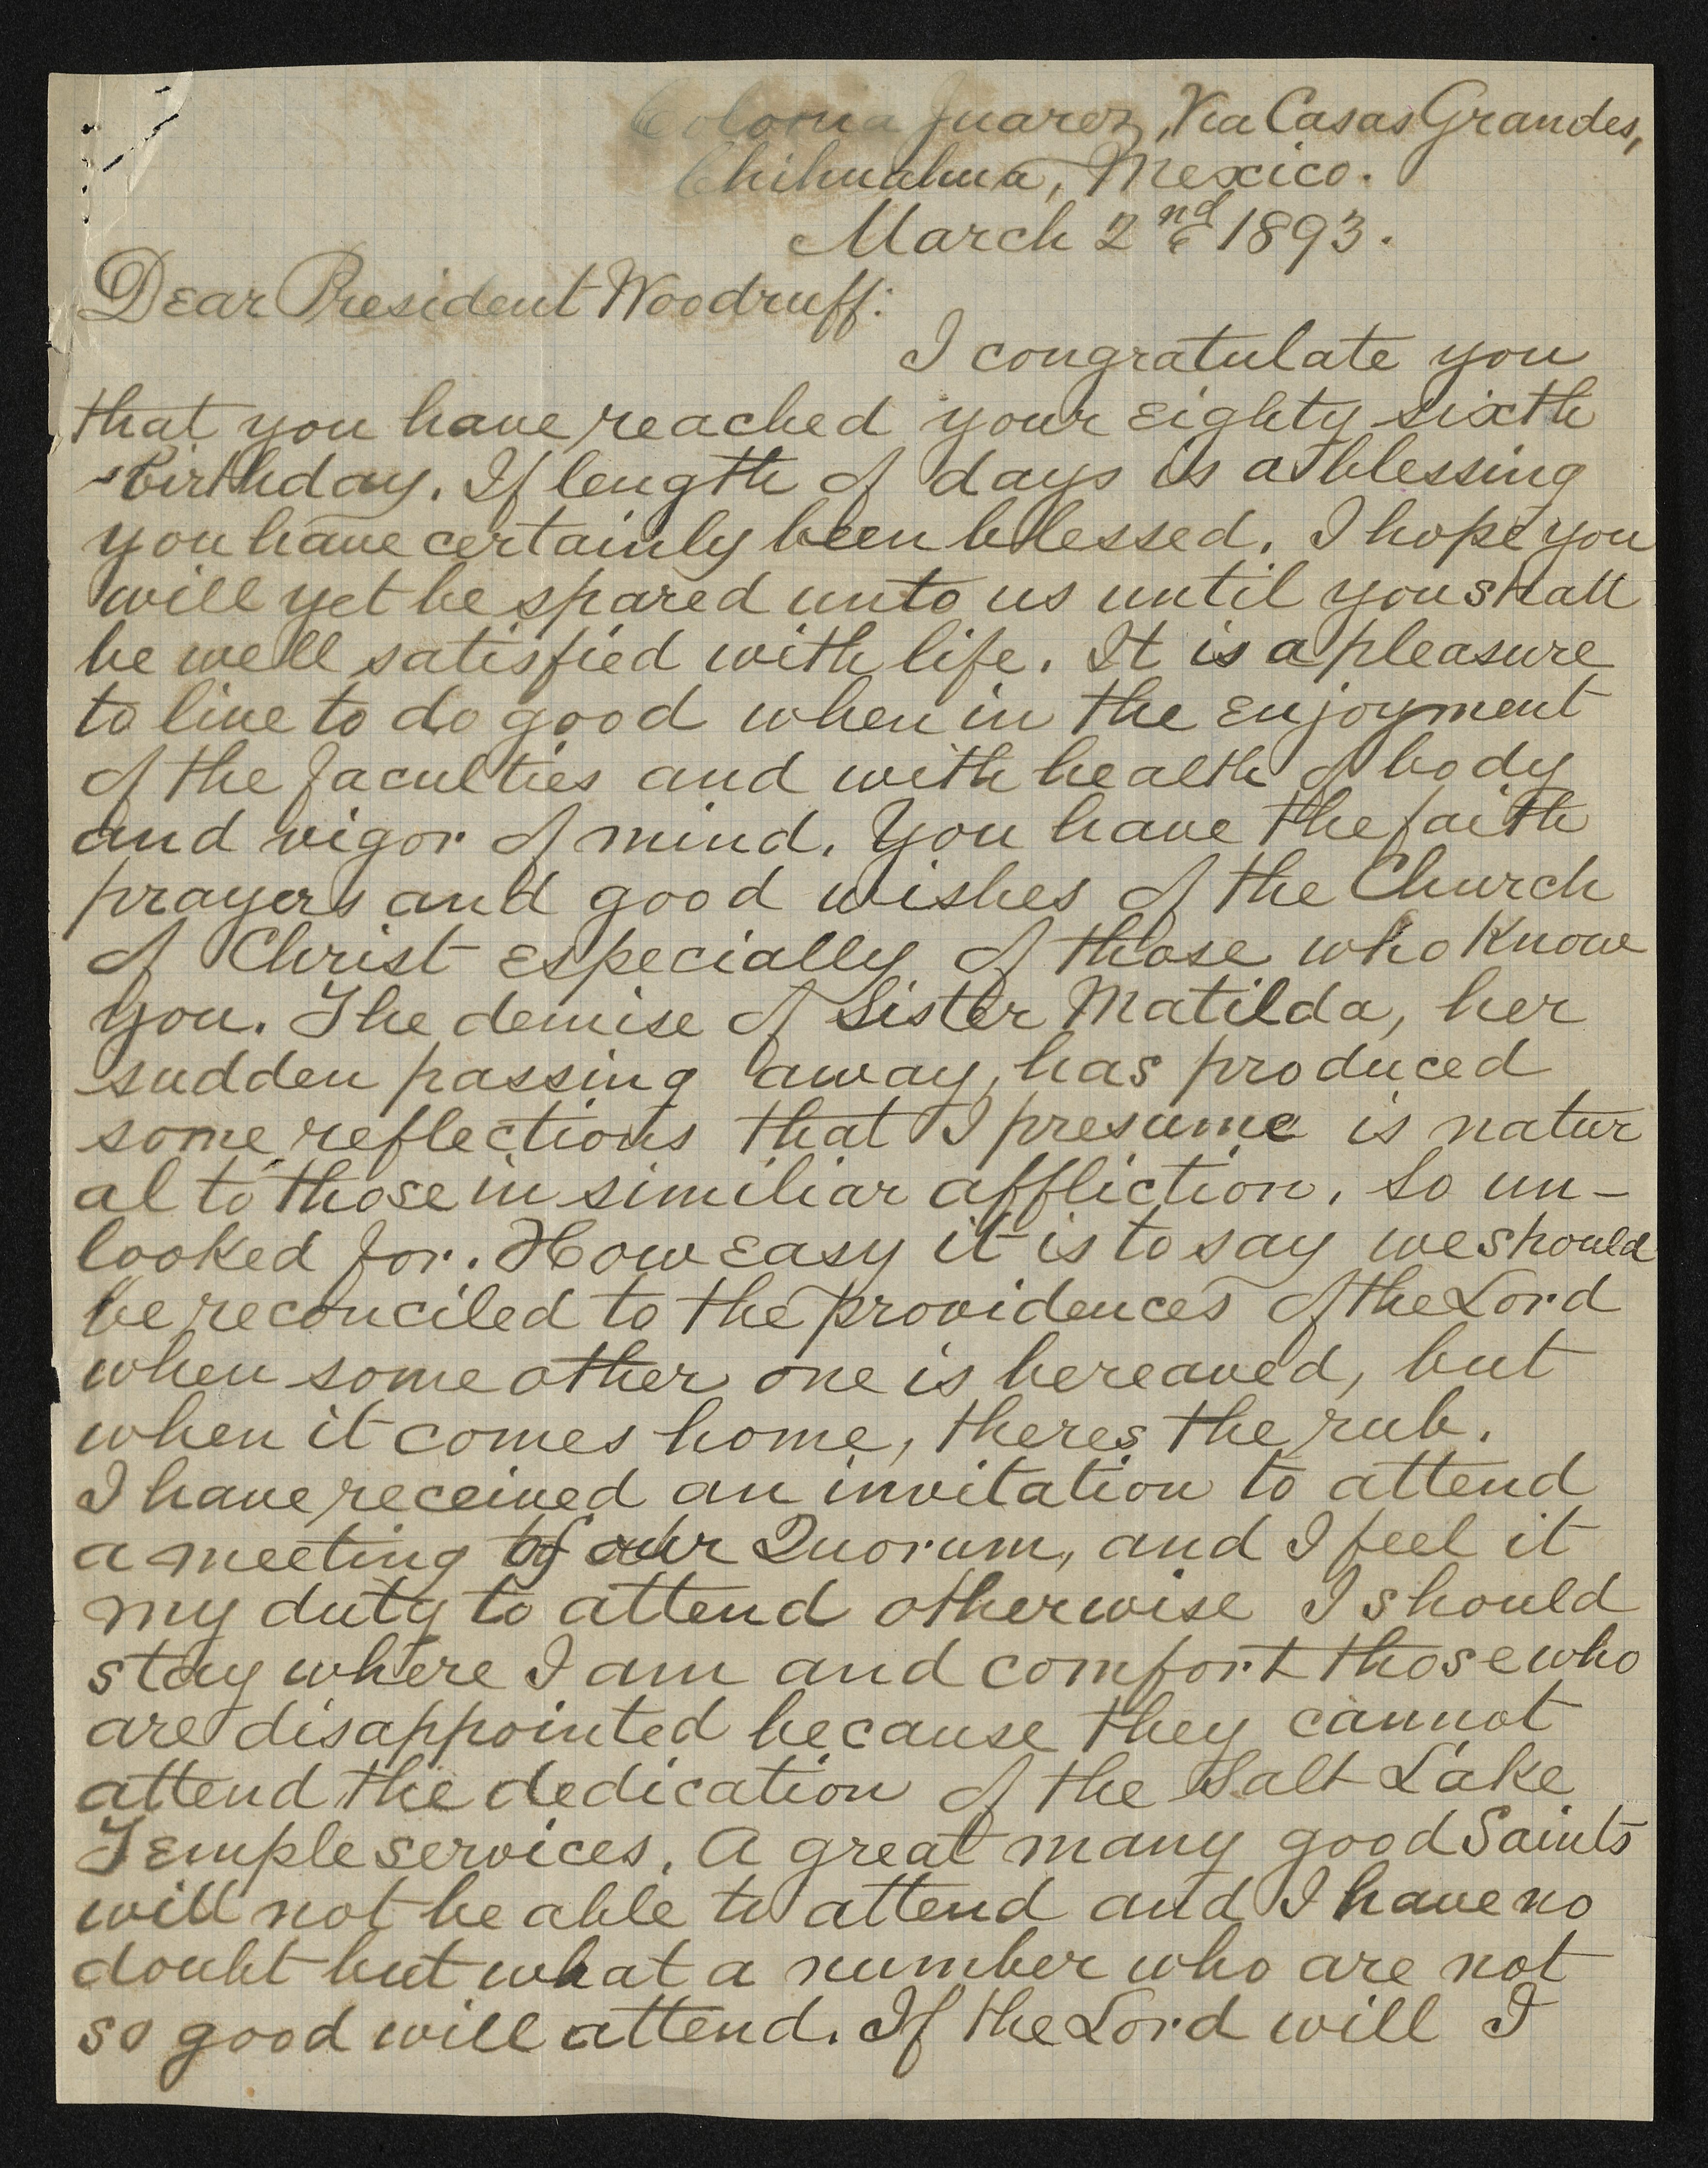 Colonia Juarez, Via Casas Grandes,
Chihuahua, Mexico.
March 2nd 1893.
Dear President Woodruff:
I congratulate you
that you have reached your eighty sixth
birthday. If length of days is a blessing
you have certainly been blessed. I hope you
will yet be spared unto us until you shall
be well satisfied with life. It is a pleasure
to live to do good when in the enjoyment
of the faculties and with health of body
and vigor of mind. You have the faith
prayers and good wishes of the Church
of Christ especially of those who know
you. The demise of Sister Matilda, her
sudden passing away, has produced
some reflections that I presume is natur
al to those in similiar affliction. So un-
looked for. How easy it is to say we should
be reconciled to the providences of the Lord
when some other one is bereaved, but
when it comes home, theres the rub.
I have received an invitation to attend
a meeting of our Quorum, and I feel it
my duty to attend otherwise I should
stay where I am and comfort those who
are disappointed because they cannot
attend the dedication of the Salt Lake
Temple services. A great many good Saints
will not be able to attend and I have no
doubt but what a number who are not
so good will attend. If the Lord will I